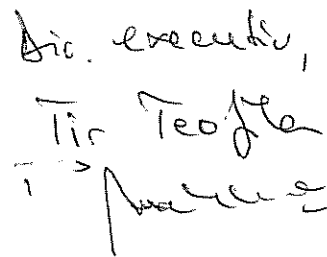 Dir. executiv,
Tir Teofila